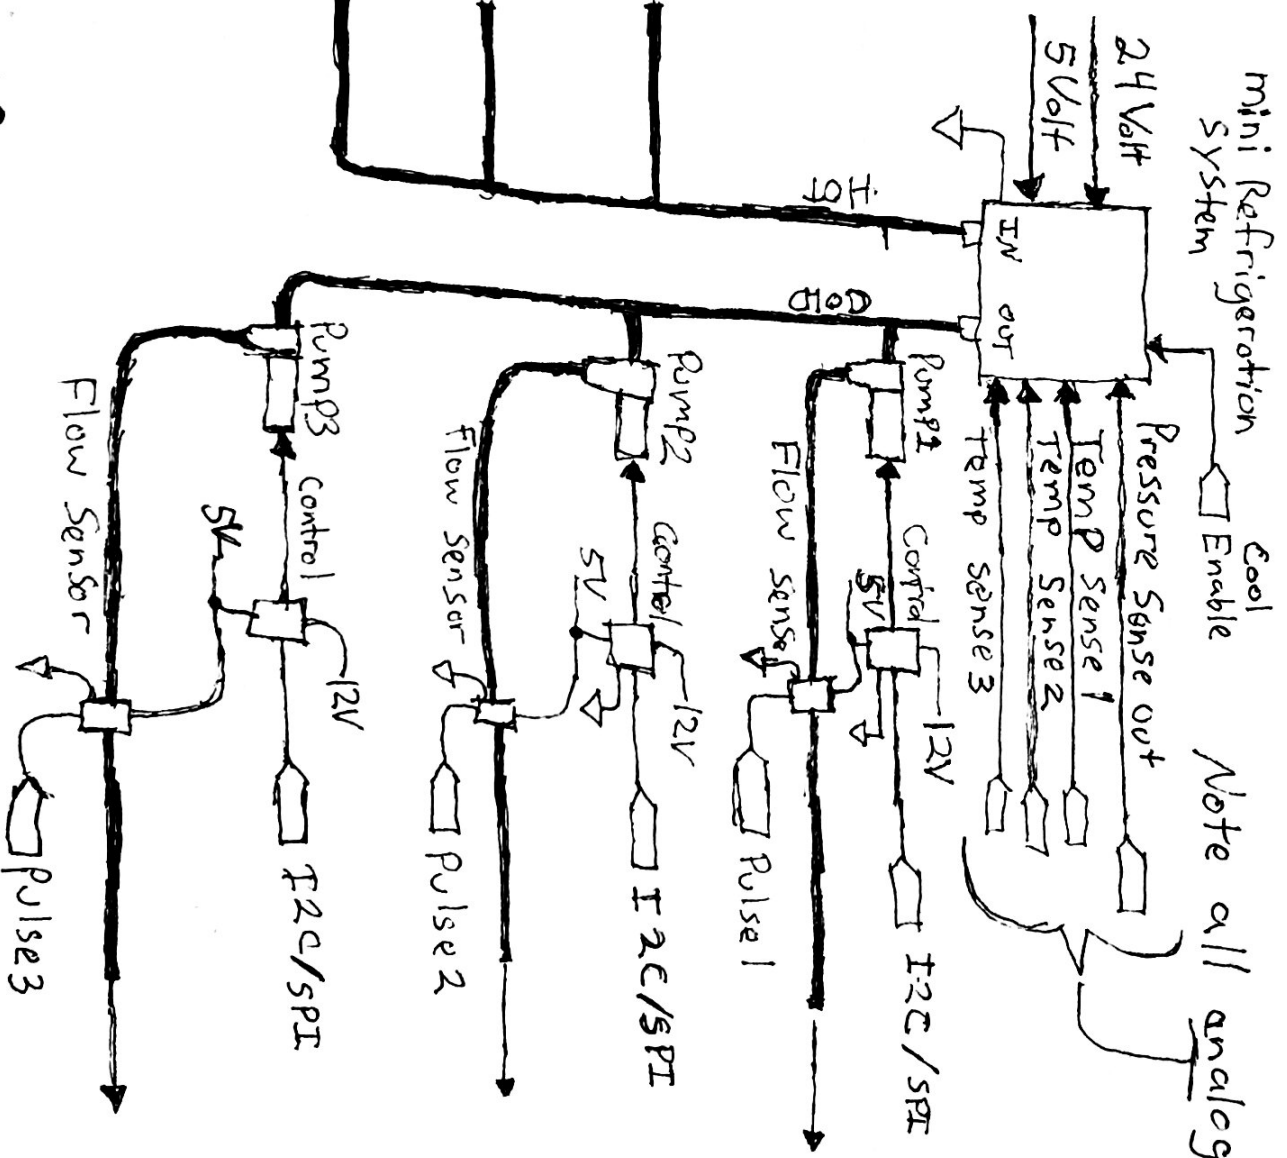 mini Refrigeration
System
Cool
Enable
Note all analog
24 Volt
5 Volt
IN
OUT
Pressure Sense out
Temp Sense 1
Temp Sense 2
Temp Sense 3
Hot
Cold
Pump1
Control
12V
5V
I2C/SPI
Flow Sense
Pulse 1
Pump2
Control
12V
5V
I2C/SPI
Flow Sensor
Pulse 2
Pump3
Control
12V
5V
I2C/SPI
Flow Sensor
Pulse 3